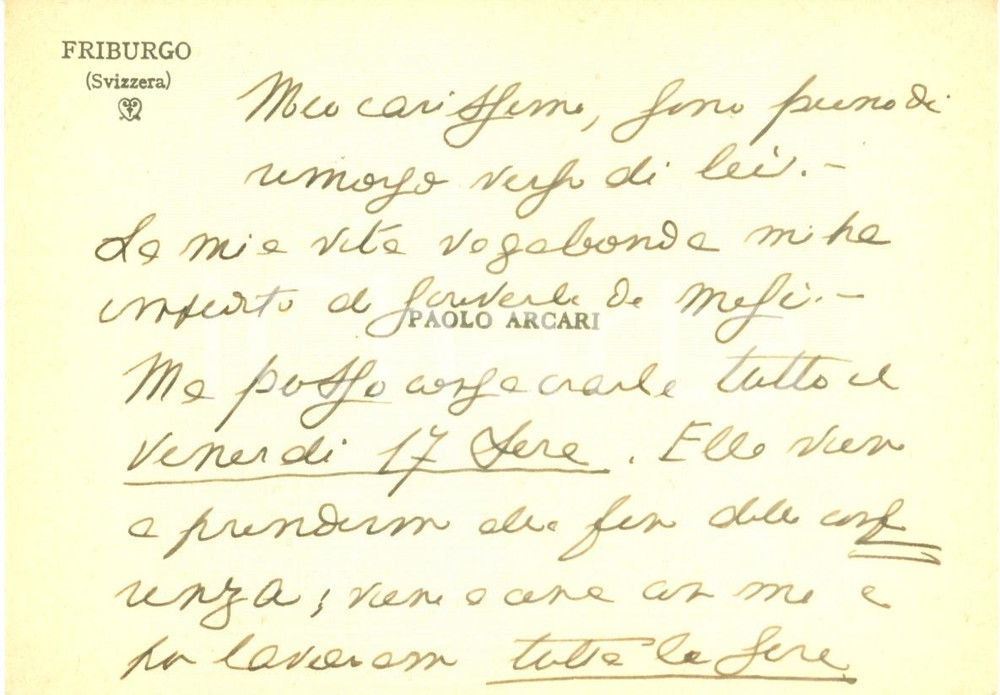 FRIBURGO
(Svizzera)
Mio carissimo, sono pieno di
rimorso verso di lei. -
La mia vita vagabonda mi ha
impedito di scriverle da mesi. -
PAOLO ARCARI
Ma posso consacrarle tutto il
venerdi 17 sera. Ella viene
a prendermi alla fine della conf
erenza; viene a cena con me e
poi lavoriamo tutta la sera